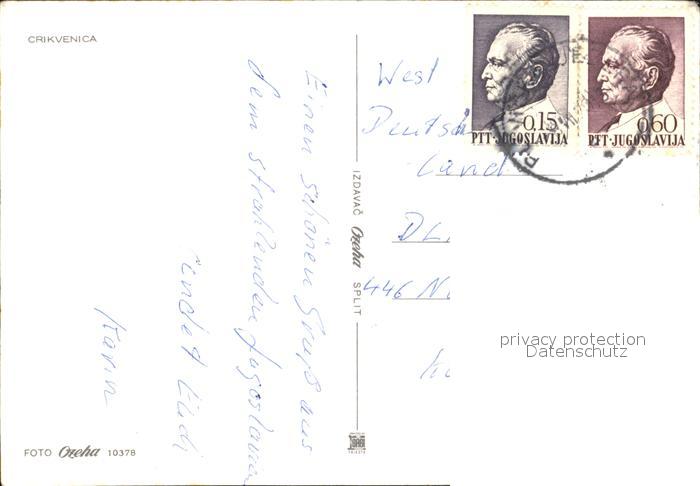 CRIKVENICA
Einen schönen Gruß aus
dem strahlenden Jugoslawien
sendet Euch
Karin
FOTO Ozeha 10378
IZDAVAČ Ozeha SPLIT
0,15
PTT·JUGOSLAVIJA
0,60
PTT·JUGOSLAVIJA
West
Deutsch
Land
446 N
privacy protection
Datenschutz